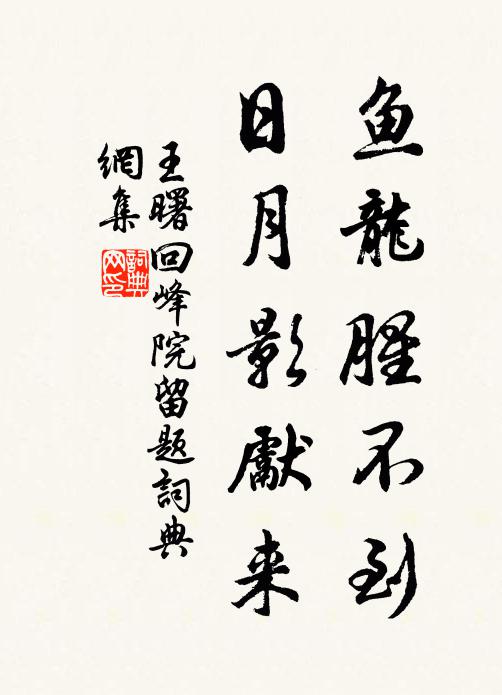 鱼龍腥不到
日月影獻来
王曙回峰院留题詞典
網集
詞典网印